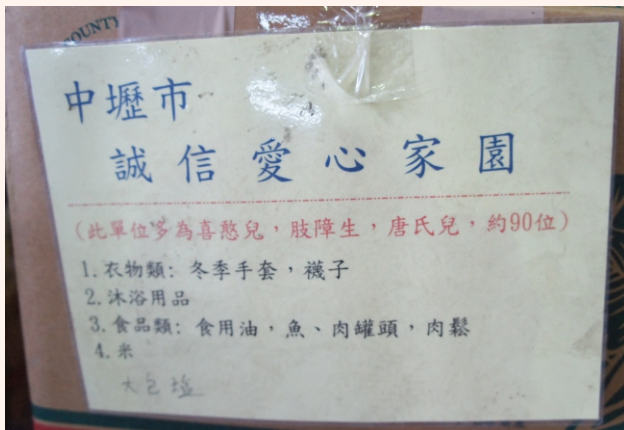 OUNTY
中壢市
誠信愛心家園
(此單位多為喜憨兒，肢障生，唐氏兒，約90位)
1.衣物類：冬季手套，襪子
2.沐浴用品
3.食品類：食用油，魚、肉罐頭，肉鬆
4.米
大包塩